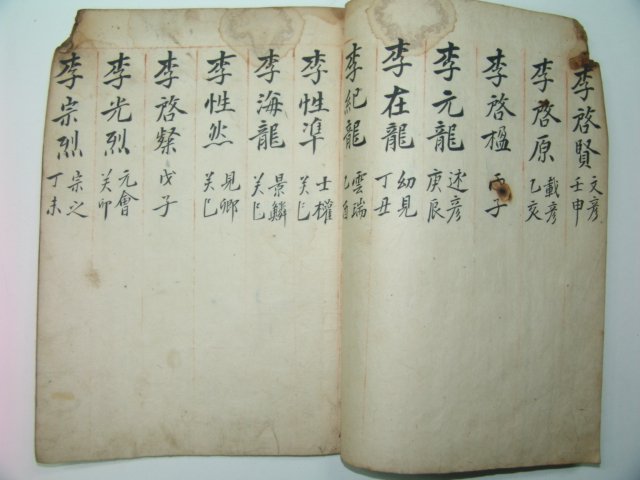 李啓賢 文彦 壬申
李啓原 載彦 乙亥
李啓楹 丙子
李元龍 述彦 庚辰
李在龍 幼見 丁丑
李紀龍 雲瑞 己酉
李性準 士權 癸巳
李海龍 景鱗 癸巳
李性烝 見卿 癸巳
李啓燦 戊子
李光烈 元會 癸卯
李宗烈 宗之 丁未